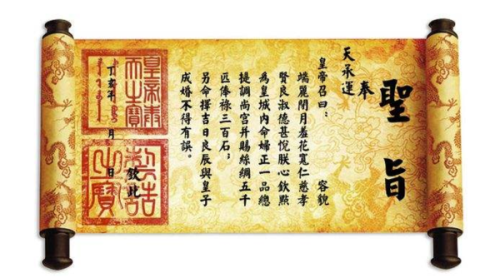 聖旨
奉
天承運
皇帝召曰： 容貌
端麗閉月羞花寬仁慈孝
賢良淑德甚悅朕心欽點
為皇城內命婦正一品總
提調尚宮并賜絲綢五千
匹俸祿三百石；
另命擇吉日良辰與皇子
成婚不得有誤。
欽此
年 月 日
制誥之寶